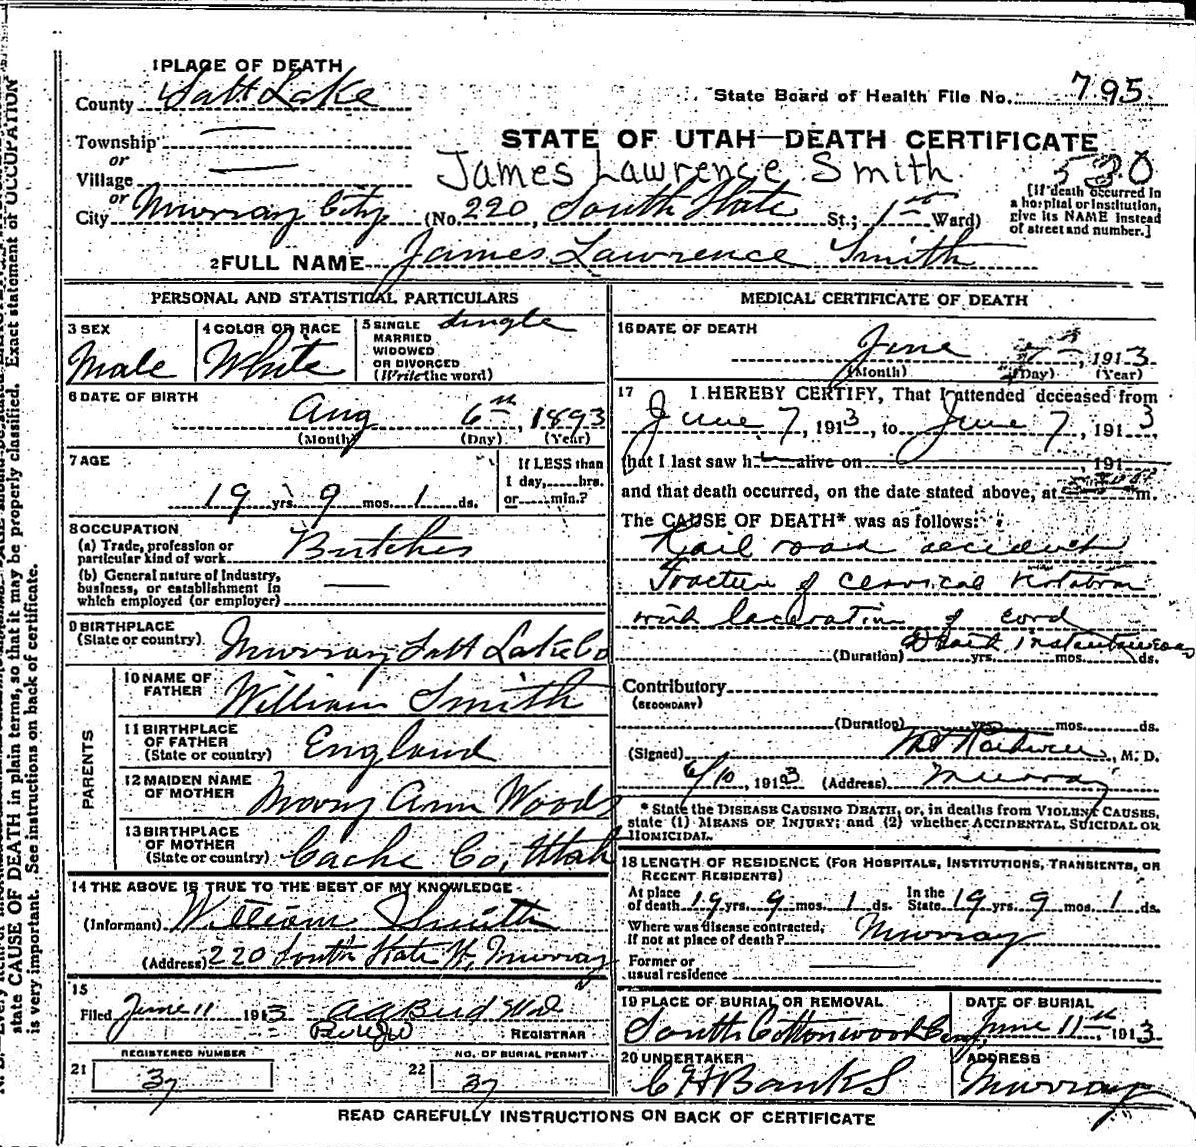 1 PLACE OF DEATH
County Salt Lake
State Board of Health File No. 795
Township
or
Village
STATE OF UTAH—DEATH CERTIFICATE
James Lawrence Smith 530
or
City Murray City (No. 220, South State St.; 1st Ward)
[If death occurred in
a hospital or institution,
give its NAME instead
of street and number.]
2 FULL NAME James Lawrence Smith
PERSONAL AND STATISTICAL PARTICULARS
3 SEX
Male
4 COLOR OR RACE
White
5 SINGLE
MARRIED
WIDOWED
OR DIVORCED
(Write the word)
Single
6 DATE OF BIRTH
Aug 6th, 1893
(Month) (Day) (Year)
7 AGE
19 yrs. 9 mos. 1 ds.
If LESS than
1 day, hrs.
or min.?
8 OCCUPATION
(a) Trade, profession or
particular kind of work Butcher
(b) General nature of industry,
business, or establishment in
which employed (or employer)
9 BIRTHPLACE
(State or country) Murray Salt Lake Co
PARENTS
10 NAME OF
FATHER William Smith
11 BIRTHPLACE
OF FATHER
(State or country) England
12 MAIDEN NAME
OF MOTHER Mary Ann Woods
13 BIRTHPLACE
OF MOTHER
(State or country) Cache Co, Utah
14 THE ABOVE IS TRUE TO THE BEST OF MY KNOWLEDGE
(Informant) William Smith
(Address) 220 South State St, Murray
15
Filed June 11 1913
REGISTRAR
REGISTERED NUMBER
21 37
NO. OF BURIAL PERMIT
22 37
MEDICAL CERTIFICATE OF DEATH
16 DATE OF DEATH
June 7th, 1913
(Month) (Day) (Year)
17 I HEREBY CERTIFY, That I attended deceased from
June 7, 1913, to June 7, 1913
that I last saw h alive on , 191
and that death occurred, on the date stated above, at m.
The CAUSE OF DEATH* was as follows:
Rail road accident
Fracture of cervical vertebra
with laceration of cord
Death instantaneous
(Duration) yrs. mos. ds.
Contributory
(SECONDARY)
(Duration) yrs. mos. ds.
(Signed) , M. D.
6/10, 1913 (Address) Murray
* State the DISEASE CAUSING DEATH, or, in deaths from VIOLENT CAUSES,
state (1) MEANS OF INJURY; and (2) whether ACCIDENTAL, SUICIDAL OR
HOMICIDAL.
18 LENGTH OF RESIDENCE (FOR HOSPITALS, INSTITUTIONS, TRANSIENTS, OR
RECENT RESIDENTS)
At place
of death 19 yrs. 9 mos. 1 ds.
In the
State 19 yrs. 9 mos. 1 ds.
Where was disease contracted,
If not at place of death? Murray
Former or
usual residence
19 PLACE OF BURIAL OR REMOVAL
South Cottonwood Cem.
DATE OF BURIAL
June 11th, 1913
20 UNDERTAKER
C H Banks
ADDRESS
Murray
READ CAREFULLY INSTRUCTIONS ON BACK OF CERTIFICATE
state CAUSE OF DEATH in plain terms, so that it may be properly classified. Exact statement of OCCUPATION
is very important. See instructions on back of certificate.